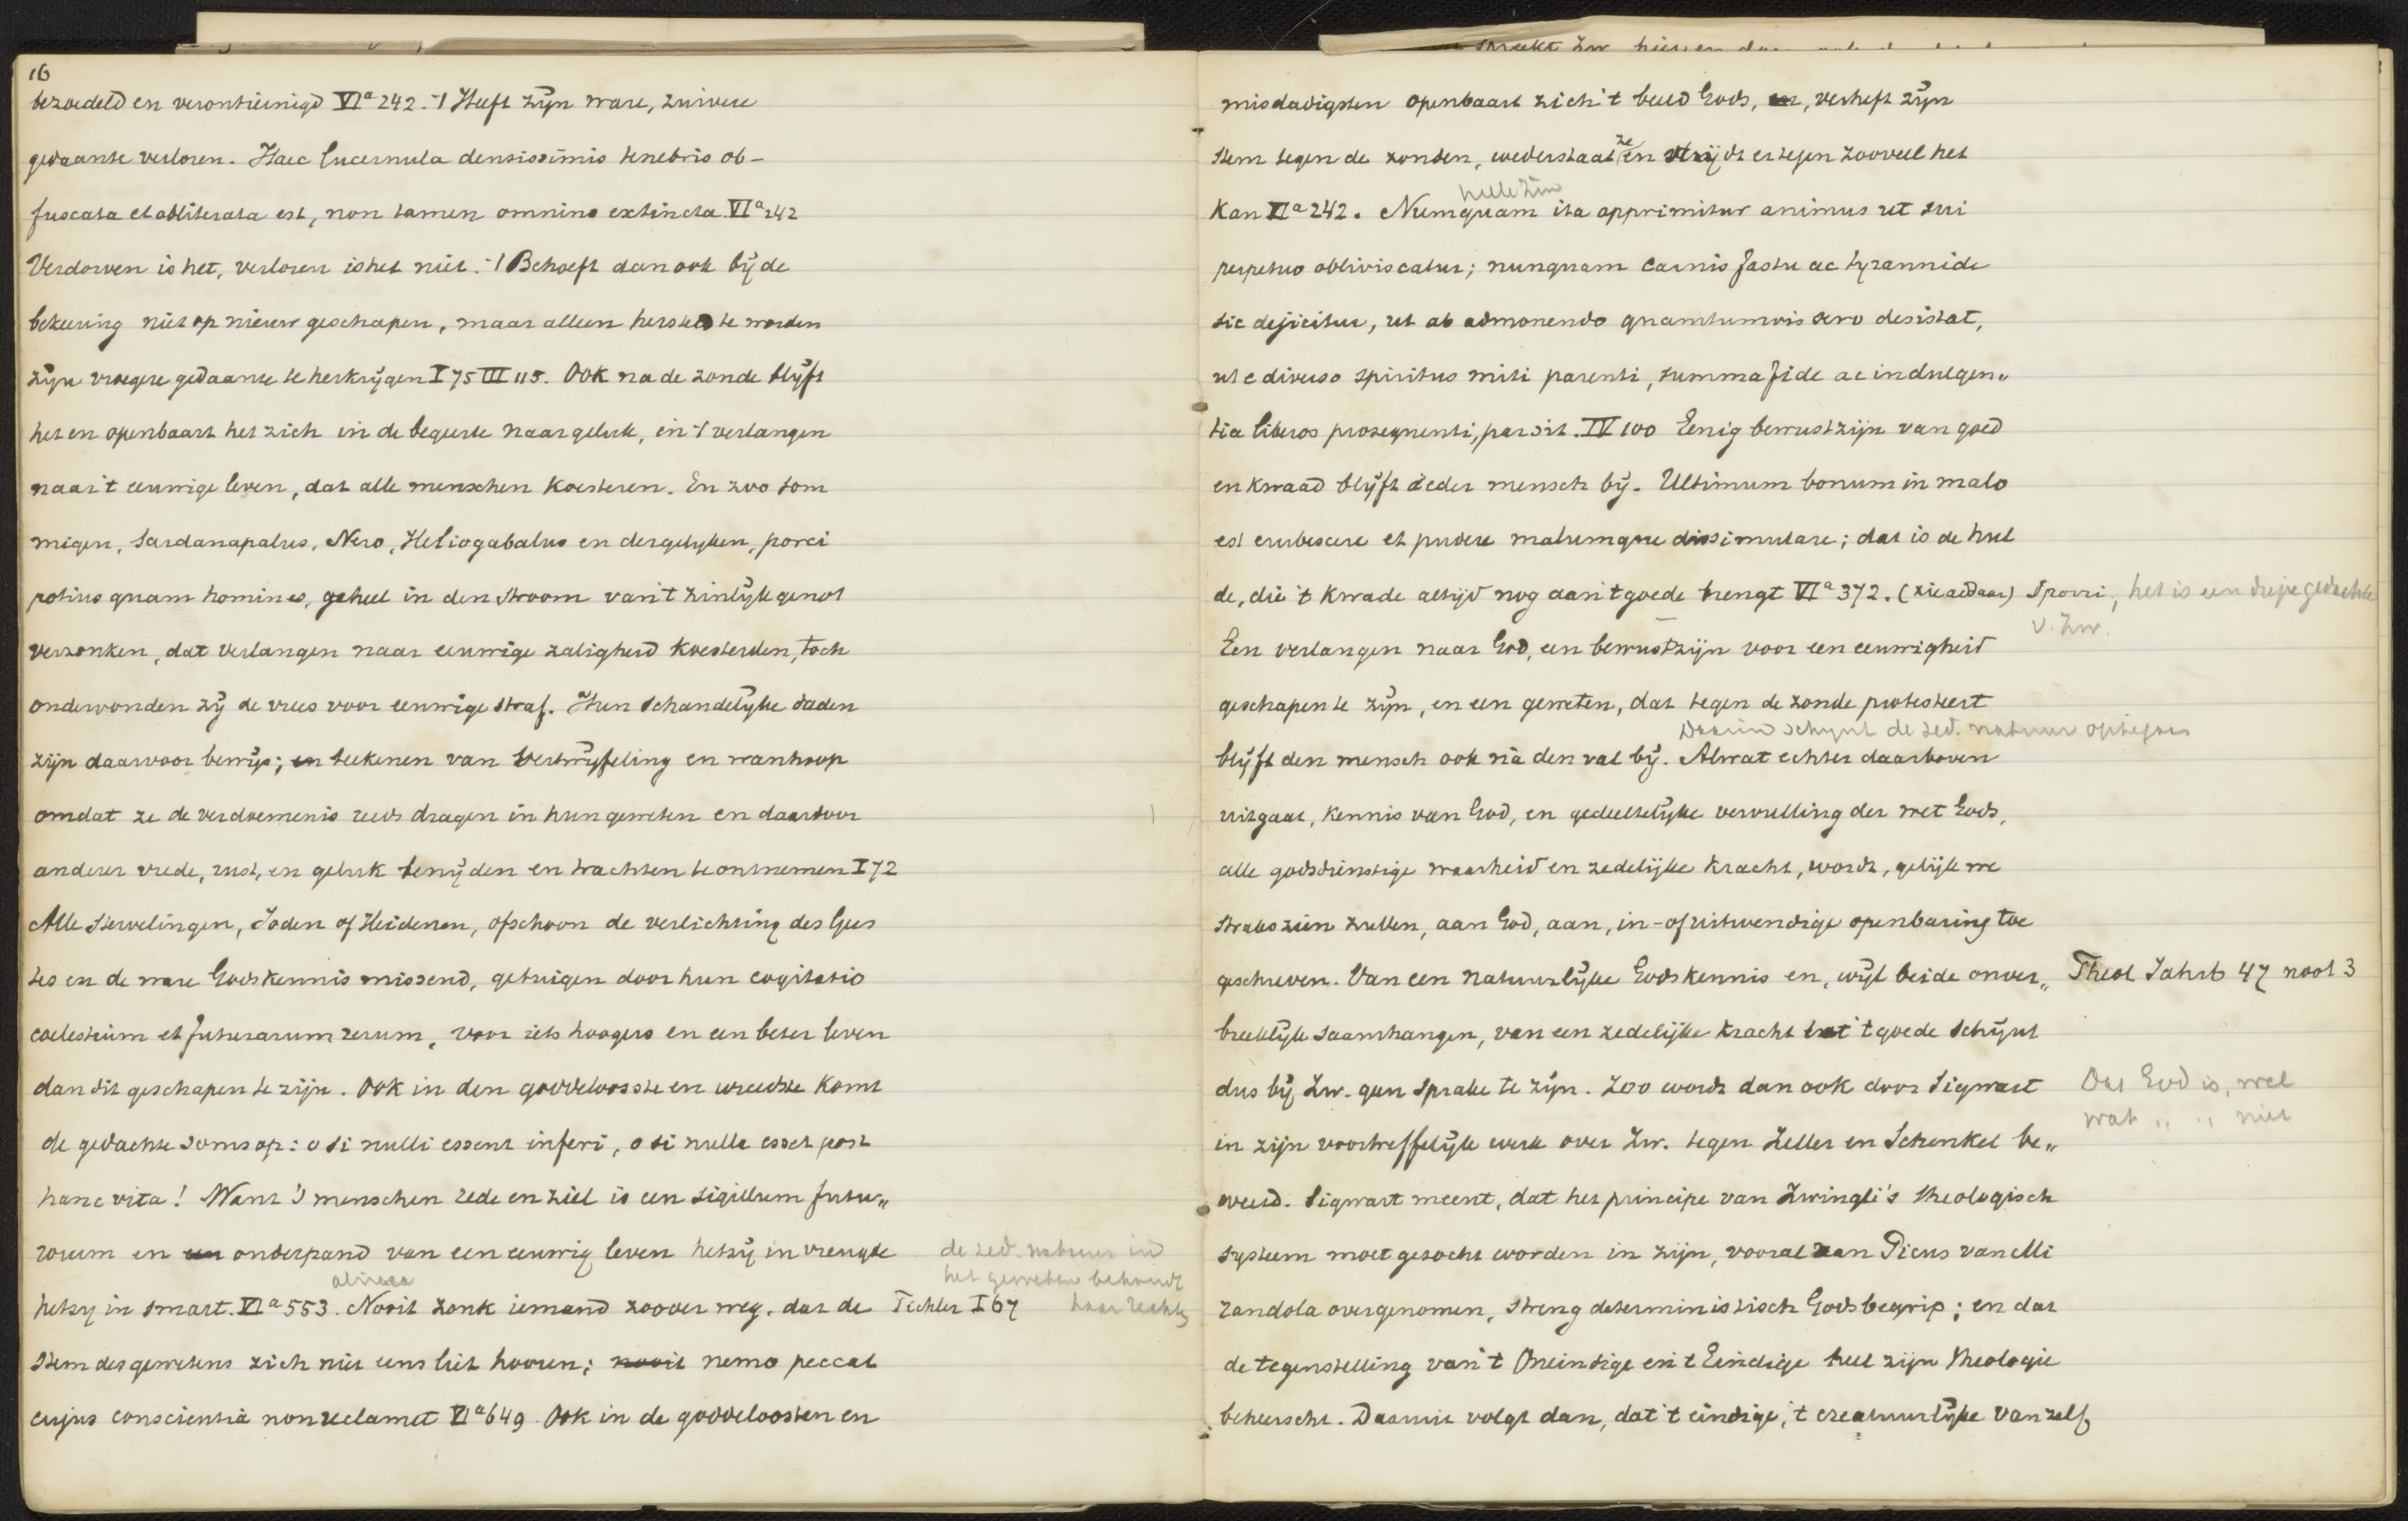 16
bezoedeld en verontreinigd VIa 242. 't Heeft zijn ware, zuivere
gedaante verloren. Haec lucernula densissimis tenebris ob-
fuscata et obliterata est, non tamen omnino extincta. VIa 242
Verdorven is het, verloren is het niet. 't Behoeft dan ook bij de
bekeering niet op nieuw geschapen, maar alleen hersteld te worden
zijn vroegere gedaante te herkrijgen I 75 III 115. Ook na de zonde blijft
het en openbaart het zich in de begeerte naar geluk, in 't verlangen
naar 't eeuwige leven, dat alle menschen koesteren. En zoo som
migen, Sardanapalus, Nero, Heliogabalus en dergelijken, porci
potius quam homines, geheel in den stroom van 't zinlijk genot
verzonken, dat verlangen naar eeuwige zaligheid koesterden, toch
ondervonden zij de vrees voor eeuwige straf. Hun schandelijke daden
zijn daarvoor bewijs; en teekenen van vertwijfeling en wanhoop
omdat ze de verdoemenis reeds dragen in hun geweten en daardoor
anderer vrede, rust, en geluk benijden en trachten te ontnemen I 72
Alle stervelingen, Joden of Heidenen, ofschoon de verlichting des Gees
tes en de ware Godskennis missend, getuigen door hun cogitatio
coelestium et futurarum rerum, voor iets hoogers en een beter leven
dan dit geschapen te zijn. Ook in den goddelooste en wreedste komt
de gedachte soms op: o si nulli essent inferi, o si nulla esset post
hanc vita! Want 's menschen rede en ziel is een sigillum futu„
rorum en een onderpand van een eeuwig leven hetzij in vreugde
de zed. natuur in
het geweten behoudt
haar rechten
alinea
hetzij in smart. VIa 553. Nooit zonk iemand zoover weg, dat de Tichler I 67
stem des gewetens zich niet eens liet hooren; nooit nemo peccat
cujus conscientia non reclamet VIa 649. Ook in de goddeloosten en
misdadigsten openbaart zich 't beeld Gods, en, verheft zijn
stem tegen de zonden, wederstaat ze en strijdt er tegen zooveel het
heele zin
kan VIa 242. Numquam ita opprimitur animus ut sui
perpetuo obliviscatur; nunquam carnis fastu ac tyrannide
sic dejicitur, ut ab admonendo quamtumvis sero desistat,
ut e diverso spiritus miti parenti, summa fide ac indulgen„
tia liberos prosequenti, par sit. IV 100 Eenig bewustzijn van goed
en kwaad blijft ieder mensch bij. Ultimum bonum in malo
est erubescere et pudere malumque dissimulare; dat is de hul
de, die 't kwade altijd nog aan 't goede brengt VIa 372. (zie aldaar) Sporri, het is een diepe gedachte
v. Zw.
Een verlangen naar God, een bewustzijn voor een eeuwigheid
geschapen te zijn, en een geweten, dat tegen de zonde protesteert
Daarin schijnt de zed. natuur op te gaan
blijft den mensch ook na den val bij. Alwat echter daarboven
uitgaat, kennis van God, en gedeeltelijke vervulling der wet Gods,
alle godsdienstige waarheid en zedelijke kracht, wordt, gelijk we
straks zien zullen, aan God, aan, in- of uitwendige openbaring toe
geschreven. Van een natuurlijke Godskennis en, wijl beide onver„ Theol Jahrb 47 noot 3
breeklijk saamhangen, van een zedelijke kracht tot 't goede schijnt
dus bij Zw. geen sprake te zijn. Zoo wordt dan ook door Sigwart
Dat God is, wel
wat „ „ niet
in zijn voortreffelijk werk over Zw. tegen Zeller en Schenkel be„
weerd. Sigwart meent, dat het principe van Zwingli's theologisch
systeem moet gezocht worden in zijn, vooral aan Picus van Mi
randola overgenomen, streng deterministisch Godsbegrip; en dat
de tegenstelling van 't Oneindige en 't Eindige heel zijn theologie
beheerscht. Daaruit volgt dan, dat 't eindige, 't creatuurlijke vanzelf